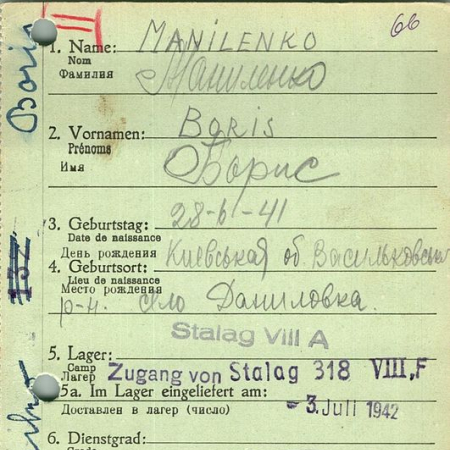 66
II
1. Name: MANILENKO
Nom
Фамилия Маниленко
2. Vornamen: BORIS
Prénoms
Имя Борис
3. Geburtstag: 28-6-41
Date de naissance
День рождения Киевськая об. Васильковськ
4. Geburtsort:
Lieu de naissance
Место рождения
р-н. село Даниловка.
Stalag VIII A
5. Lager:
Camp
Лагер Zugang von Stalag 318 VIII, F
5a. Im Lager eingeliefert am:
Доставлен в лагер (число) - 3. Juli 1942
6. Dienstgrad:
Boris
137